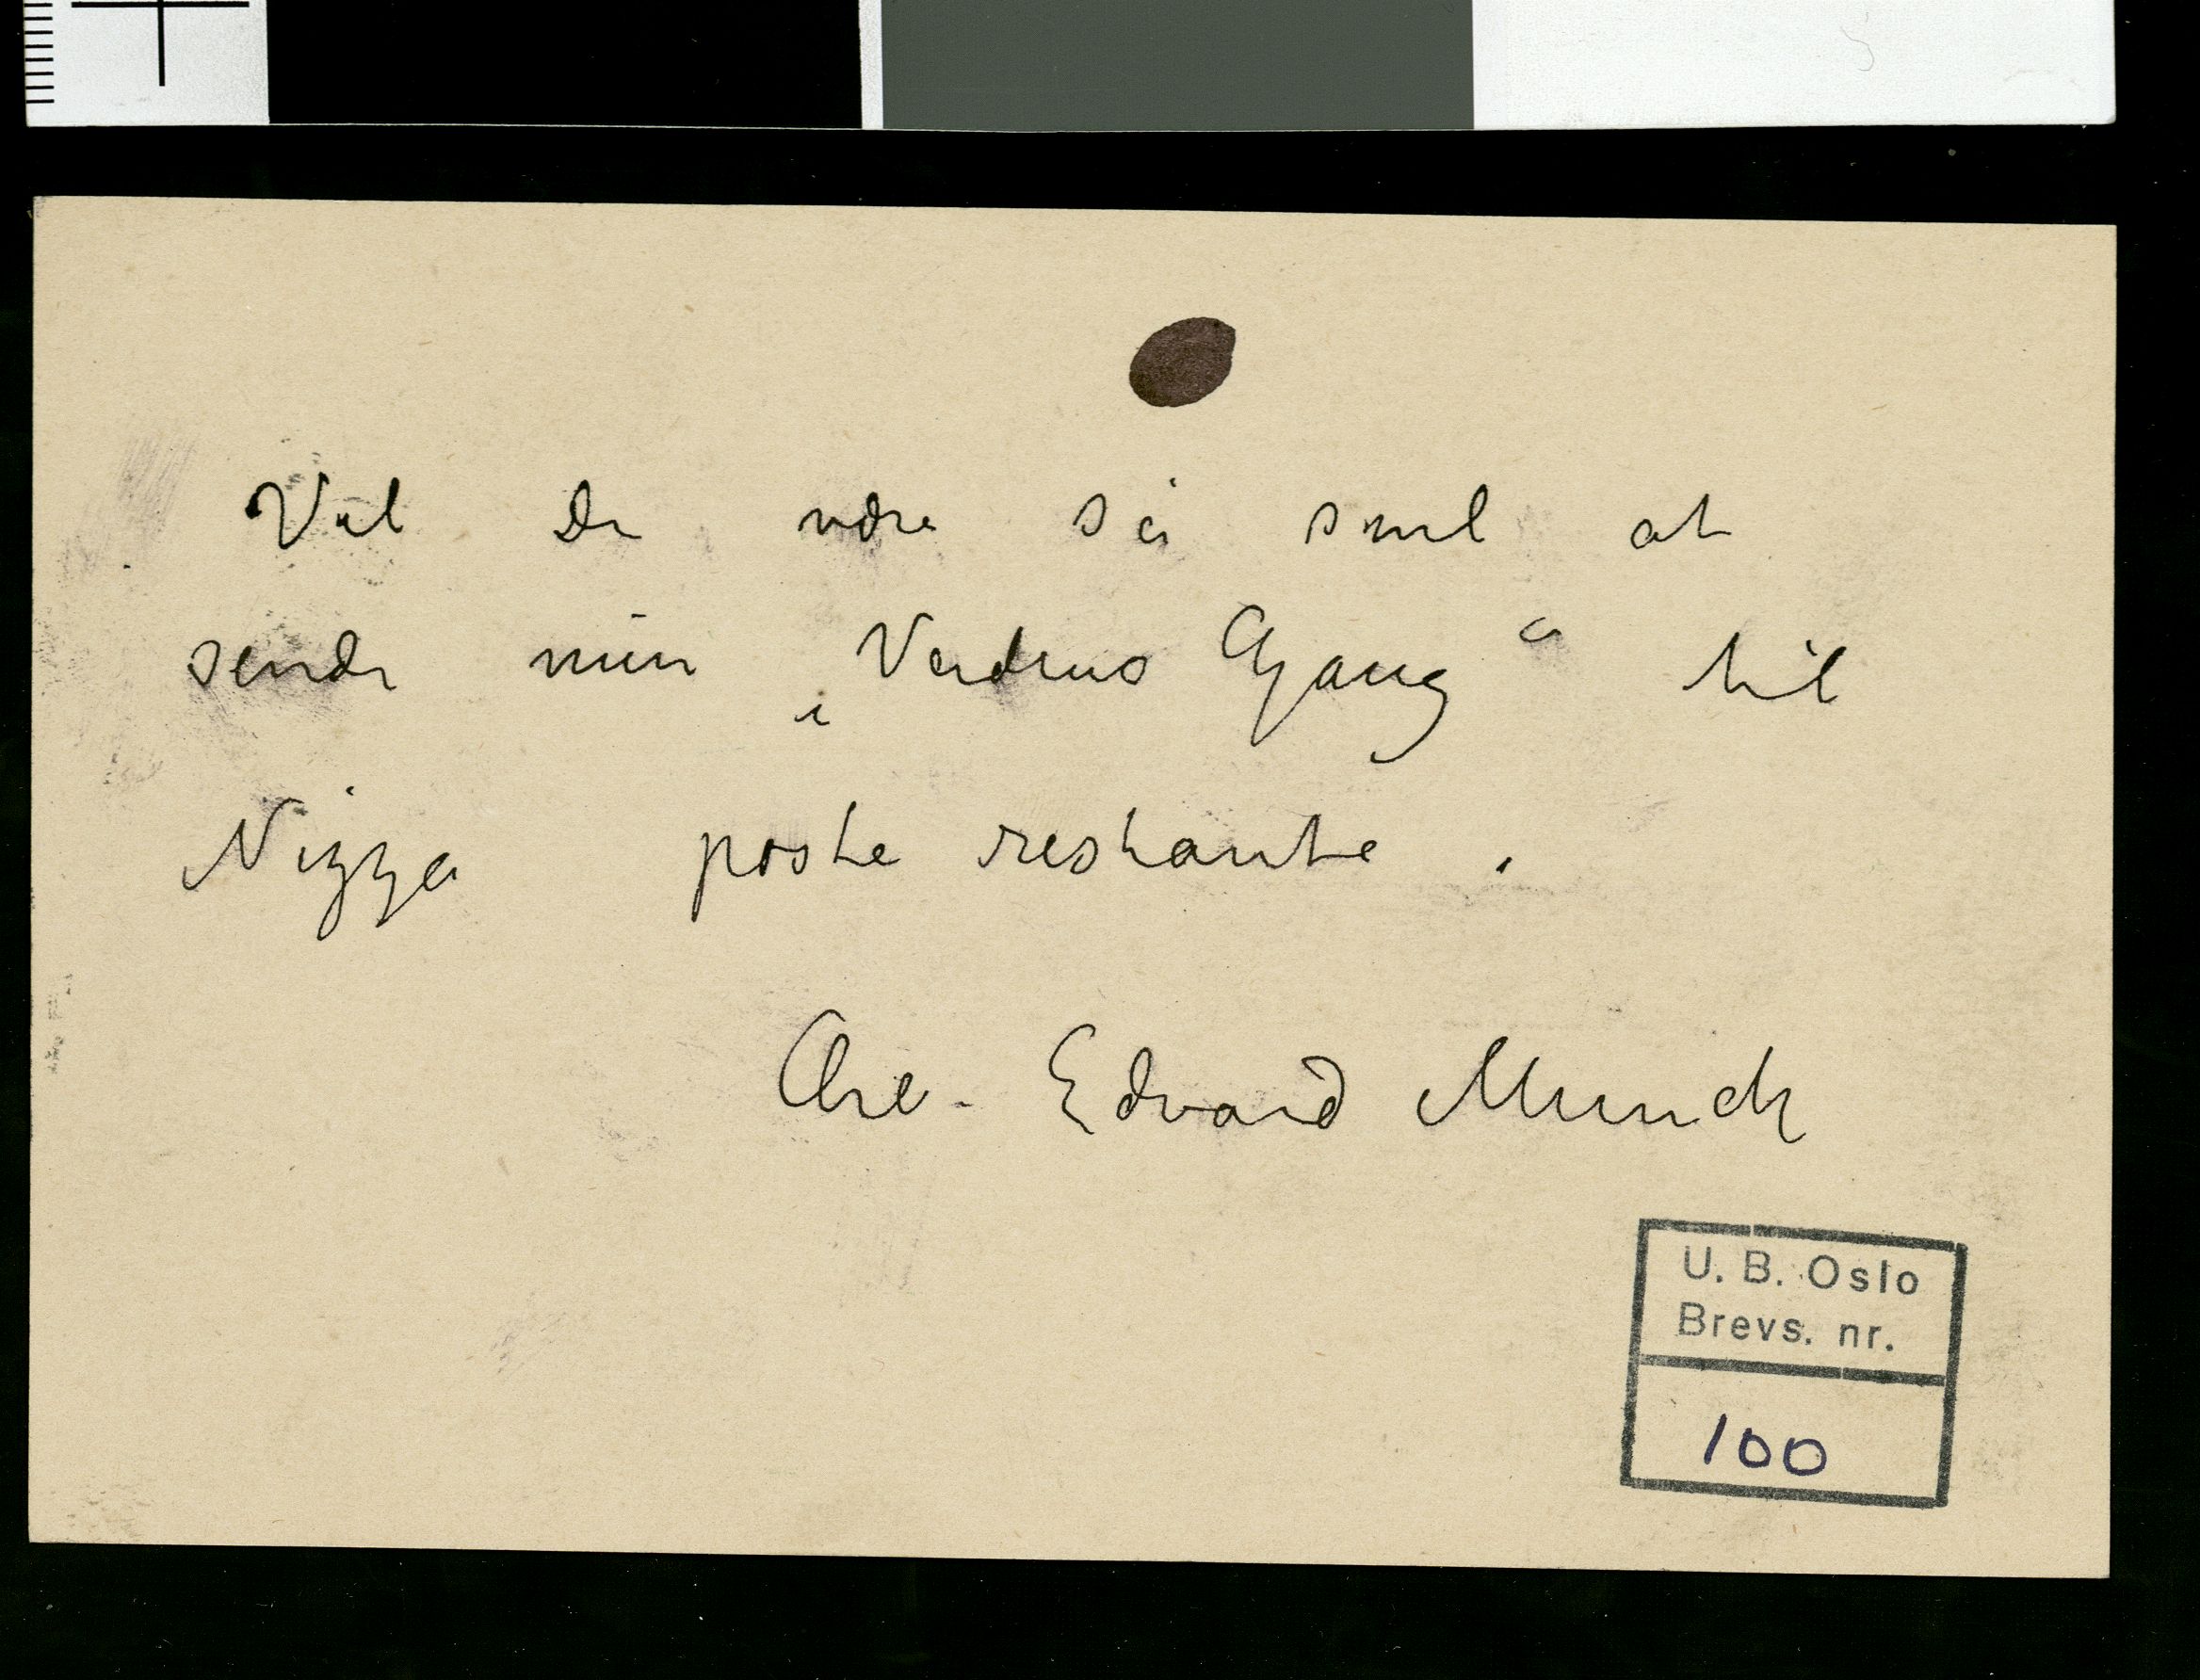 Vil De være så snil at
sende min „Verdens Gang“ til
Nizza poste restante.
Edvard Munch
U. B. Oslo
Brevs. nr.
100